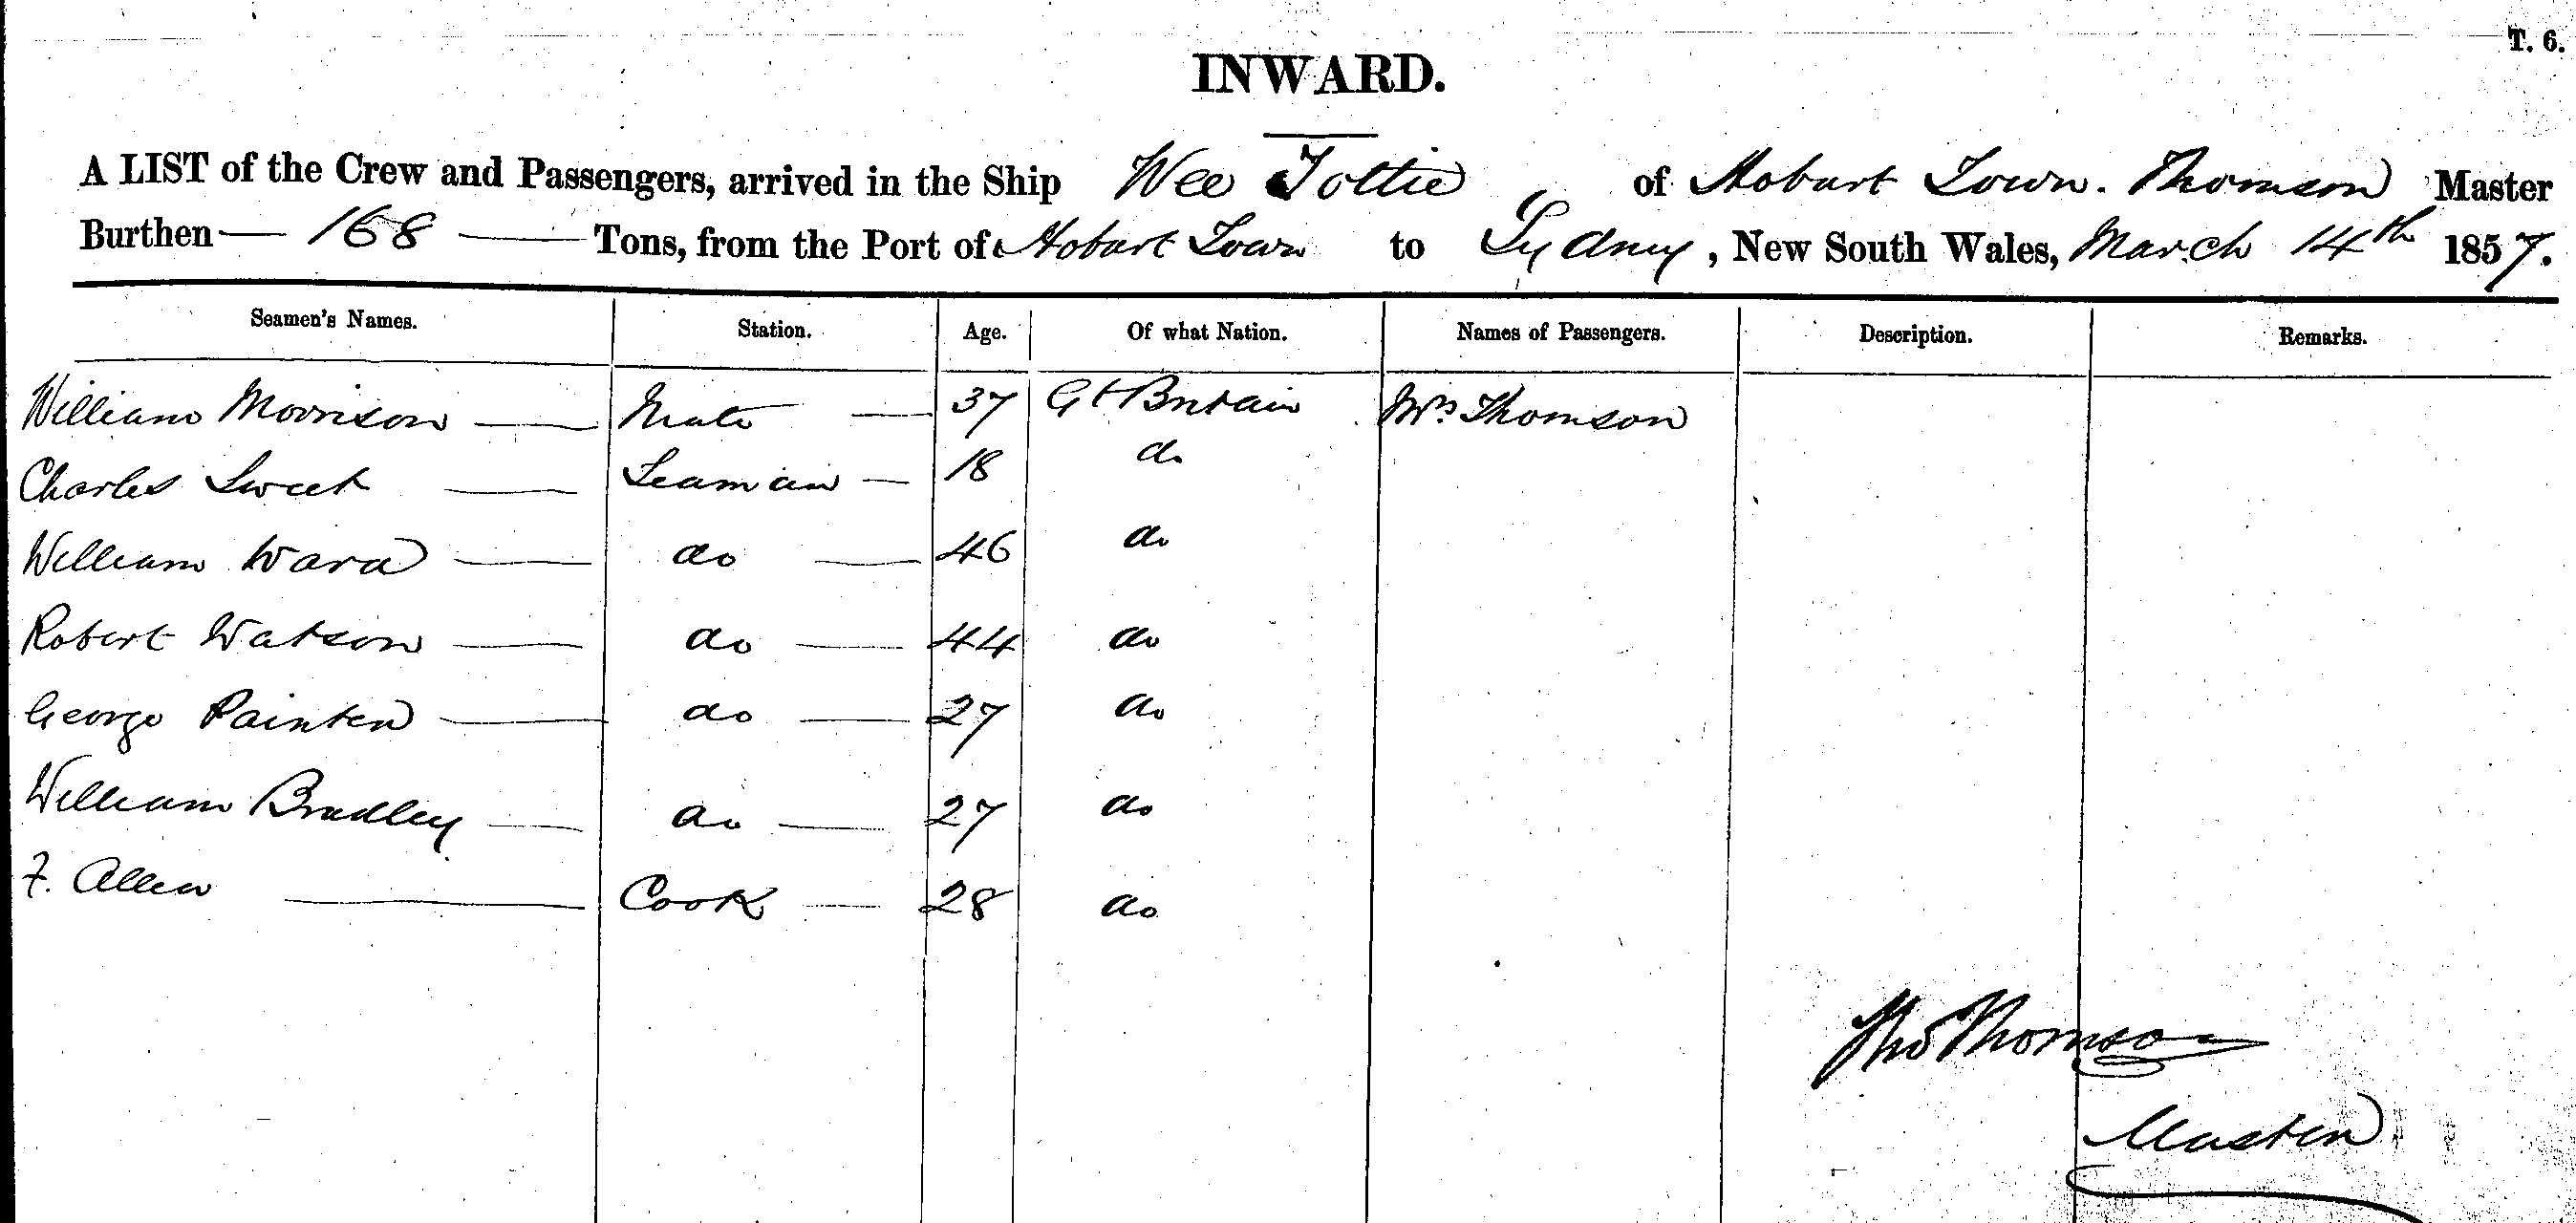 T. 6.
INWARD.
A LIST of the Crew and Passengers, arrived in the Ship Wee Tottie of Hobart Town. Thomson Master
Burthen — 168 — Tons, from the Port of Hobart Town to Sydney, New South Wales, March 14th 1857.
Seamen's Names. Station. Age. Of what Nation. Names of Passengers. Description. Remarks.
William Morrison — Mate — 37 Gt Britain Mrs. Thomson
Charles Sweet — Seaman — 18 do
William Ward — do — 46 do
Robert Watson — do — 44 do
George Painter — do — 27 do
William Bradley — do — 27 do
F. Allen — Cook — 28 do
Thos Thomson
Master